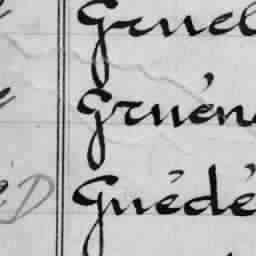 Gruel
Gruén
D Guédé